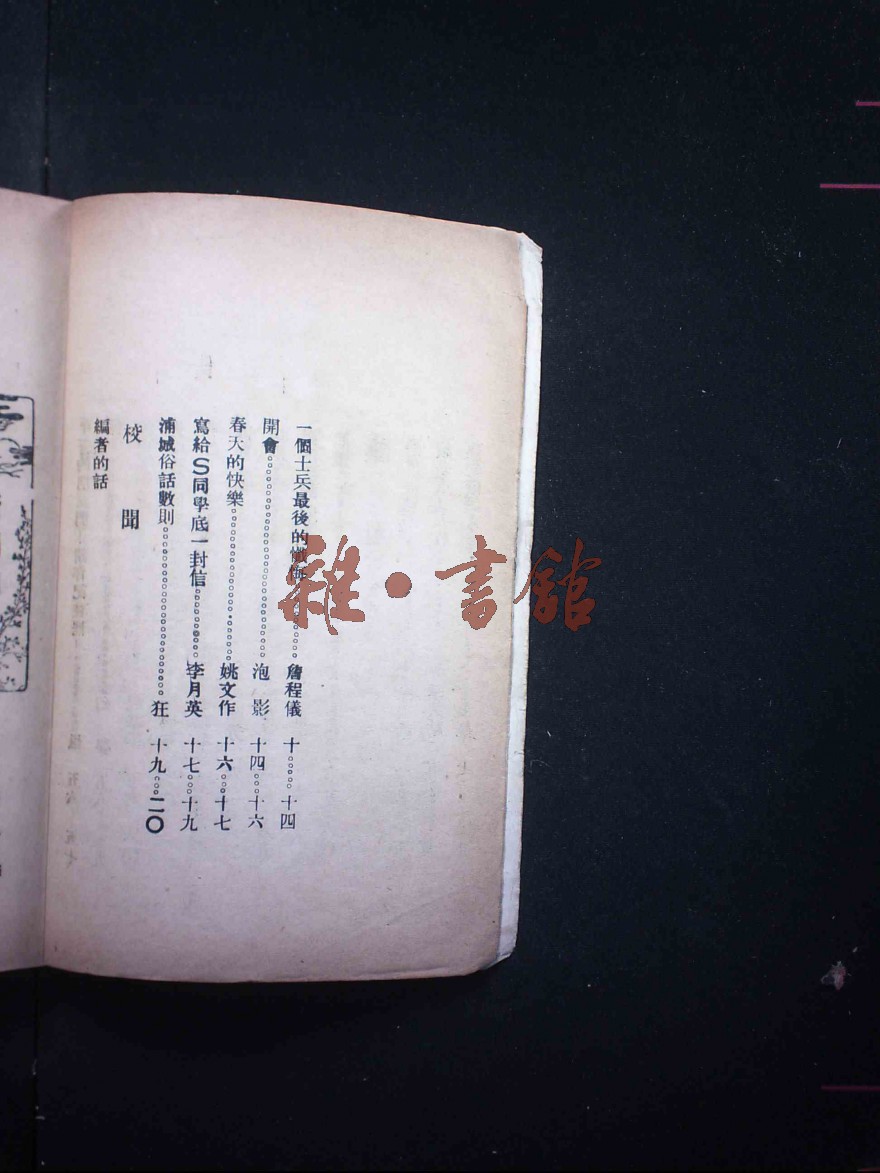 一個士兵最後的懺悔。。。。。。詹程儀 十。。。。。十四
開會。。。。。。。。。。。。。。。。。。。泡影 十四。。。十六
春天的快樂。。。。。。。。。。。。。。。姚文作 十六。。。十七
寫給S同學底一封信。。。。。。。。李月英 十七。。。十九
浦城俗話數則。。。。。。。。。。。。。。。。。。。狂 十九。。。二〇
校聞
編者的話
雜·書館